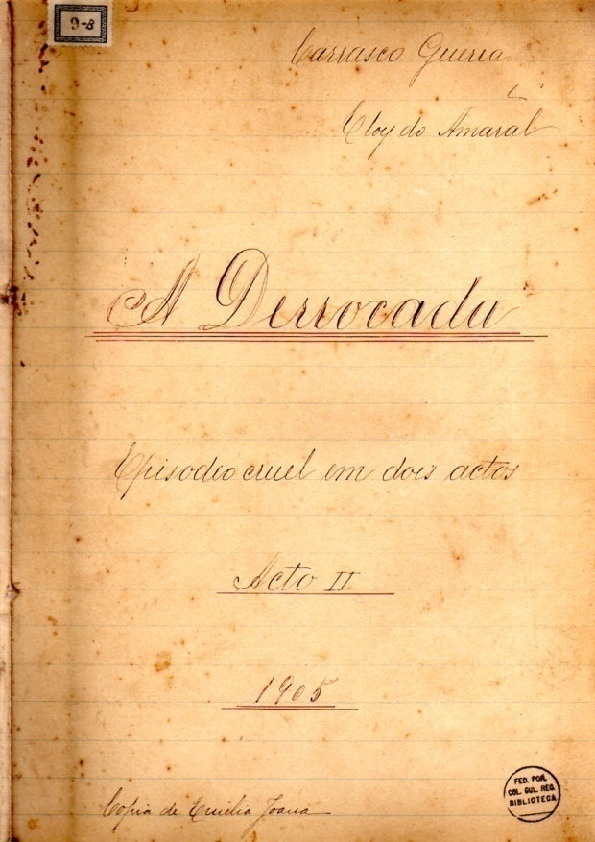 9-B
Carrasco Guerra
e
Eloy do Amaral
A Derrocada
Episodio cruel em dois actos
Acto II
1905
Copia de Emilia Joana
FED. POR.
COL. CUL. REC.
BIBLIOTECA